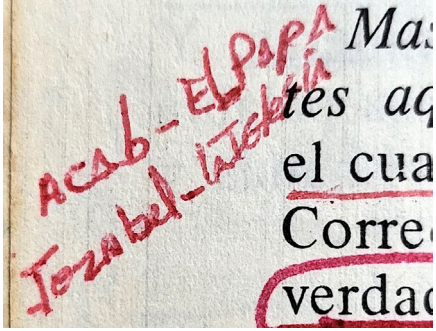 Acab - El PapA
Jezabel - la Iglesia
Mas
tes aq
el cua
Corre
verdad